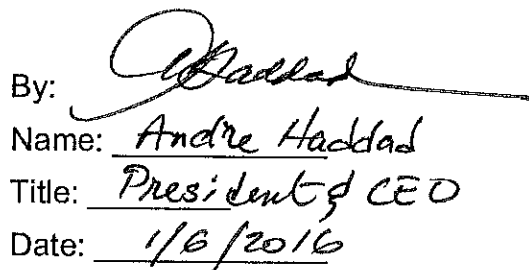 By: AHaddad
Name: Andre Haddad
Title: President & CEO
Date: 1/6/2016